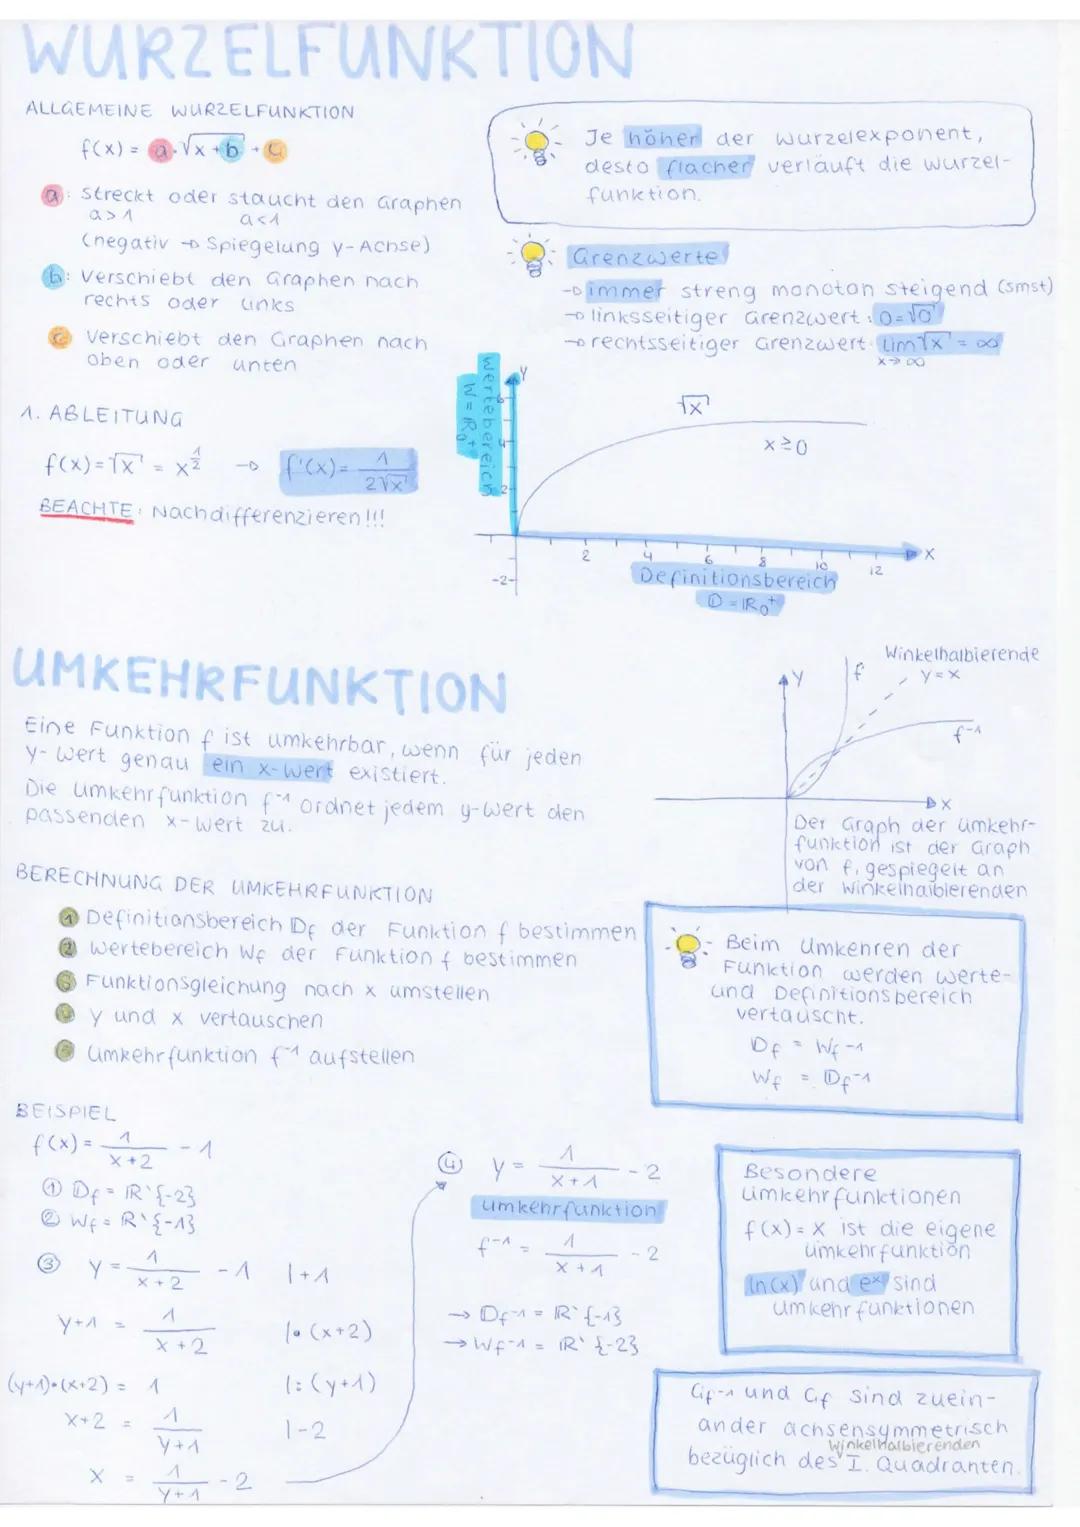 WURZELFUNKTION
ALLGEMEINE WURZELFUNKTION
f(x) = a·√x+b + c
a: streckt oder staucht den Graphen
a>1 a<1
(negativ → Spiegelung y-Achse)
b: Verschiebt den Graphen nach
rechts oder links
c Verschiebt den Graphen nach
oben oder unten
1. ABLEITUNG
f(x) = √x = x^1/2 → f'(x) = 1/2√x
BEACHTE: Nachdifferenzieren!!!
Je höher der Wurzelexponent,
desto flacher verläuft die Wurzel-
funktion.
Grenzwerte
→ immer streng monoton steigend (smst)
→ linksseitiger Grenzwert: 0=√0
→ rechtsseitiger Grenzwert: lim √x = ∞
x→∞
Wertebereich
W = ℝ₀⁺
y
6
4
2
-2
√x
x≥0
2 4 6 8 10 12
x
Definitionsbereich
D = ℝ₀⁺
UMKEHRFUNKTION
Eine Funktion f ist umkehrbar, wenn für jeden
y-Wert genau ein x-Wert existiert.
Die Umkehrfunktion f⁻¹ ordnet jedem y-Wert den
passenden x-Wert zu.
Winkelhalbierende
y=x
y
f
f⁻¹
x
Der Graph der Umkehr-
funktion ist der Graph
von f, gespiegelt an
der Winkelhalbierenden
BERECHNUNG DER UMKEHRFUNKTION
1 Definitionsbereich Df der Funktion f bestimmen
2 Wertebereich Wf der Funktion f bestimmen
3 Funktionsgleichung nach x umstellen
4 y und x vertauschen
5 Umkehrfunktion f⁻¹ aufstellen
Beim Umkehren der
Funktion werden Werte-
und Definitionsbereich
vertauscht.
Df = Wf-1
Wf = Df-1
BEISPIEL
f(x) = 1/x+2 - 1
① Df = ℝ\{-2}
② Wf = ℝ\{-1}
③ y = 1/x+2 - 1 |+1
y+1 = 1/x+2 |•(x+2)
(y+1)•(x+2) = 1 |:(y+1)
x+2 = 1/y+1 |-2
x = 1/y+1 - 2
④ y = 1/x+1 - 2
Umkehrfunktion
f⁻¹ = 1/x+1 - 2
→ Df-1 = ℝ\{-1}
→ Wf-1 = ℝ\{-2}
Besondere
Umkehrfunktionen
f(x) = x ist die eigene
Umkehrfunktion
ln(x) und eˣ sind
Umkehrfunktionen
Gf-1 und Gf sind zuein-
ander achsensymmetrisch
Winkelhalbierenden
bezüglich des I. Quadranten.